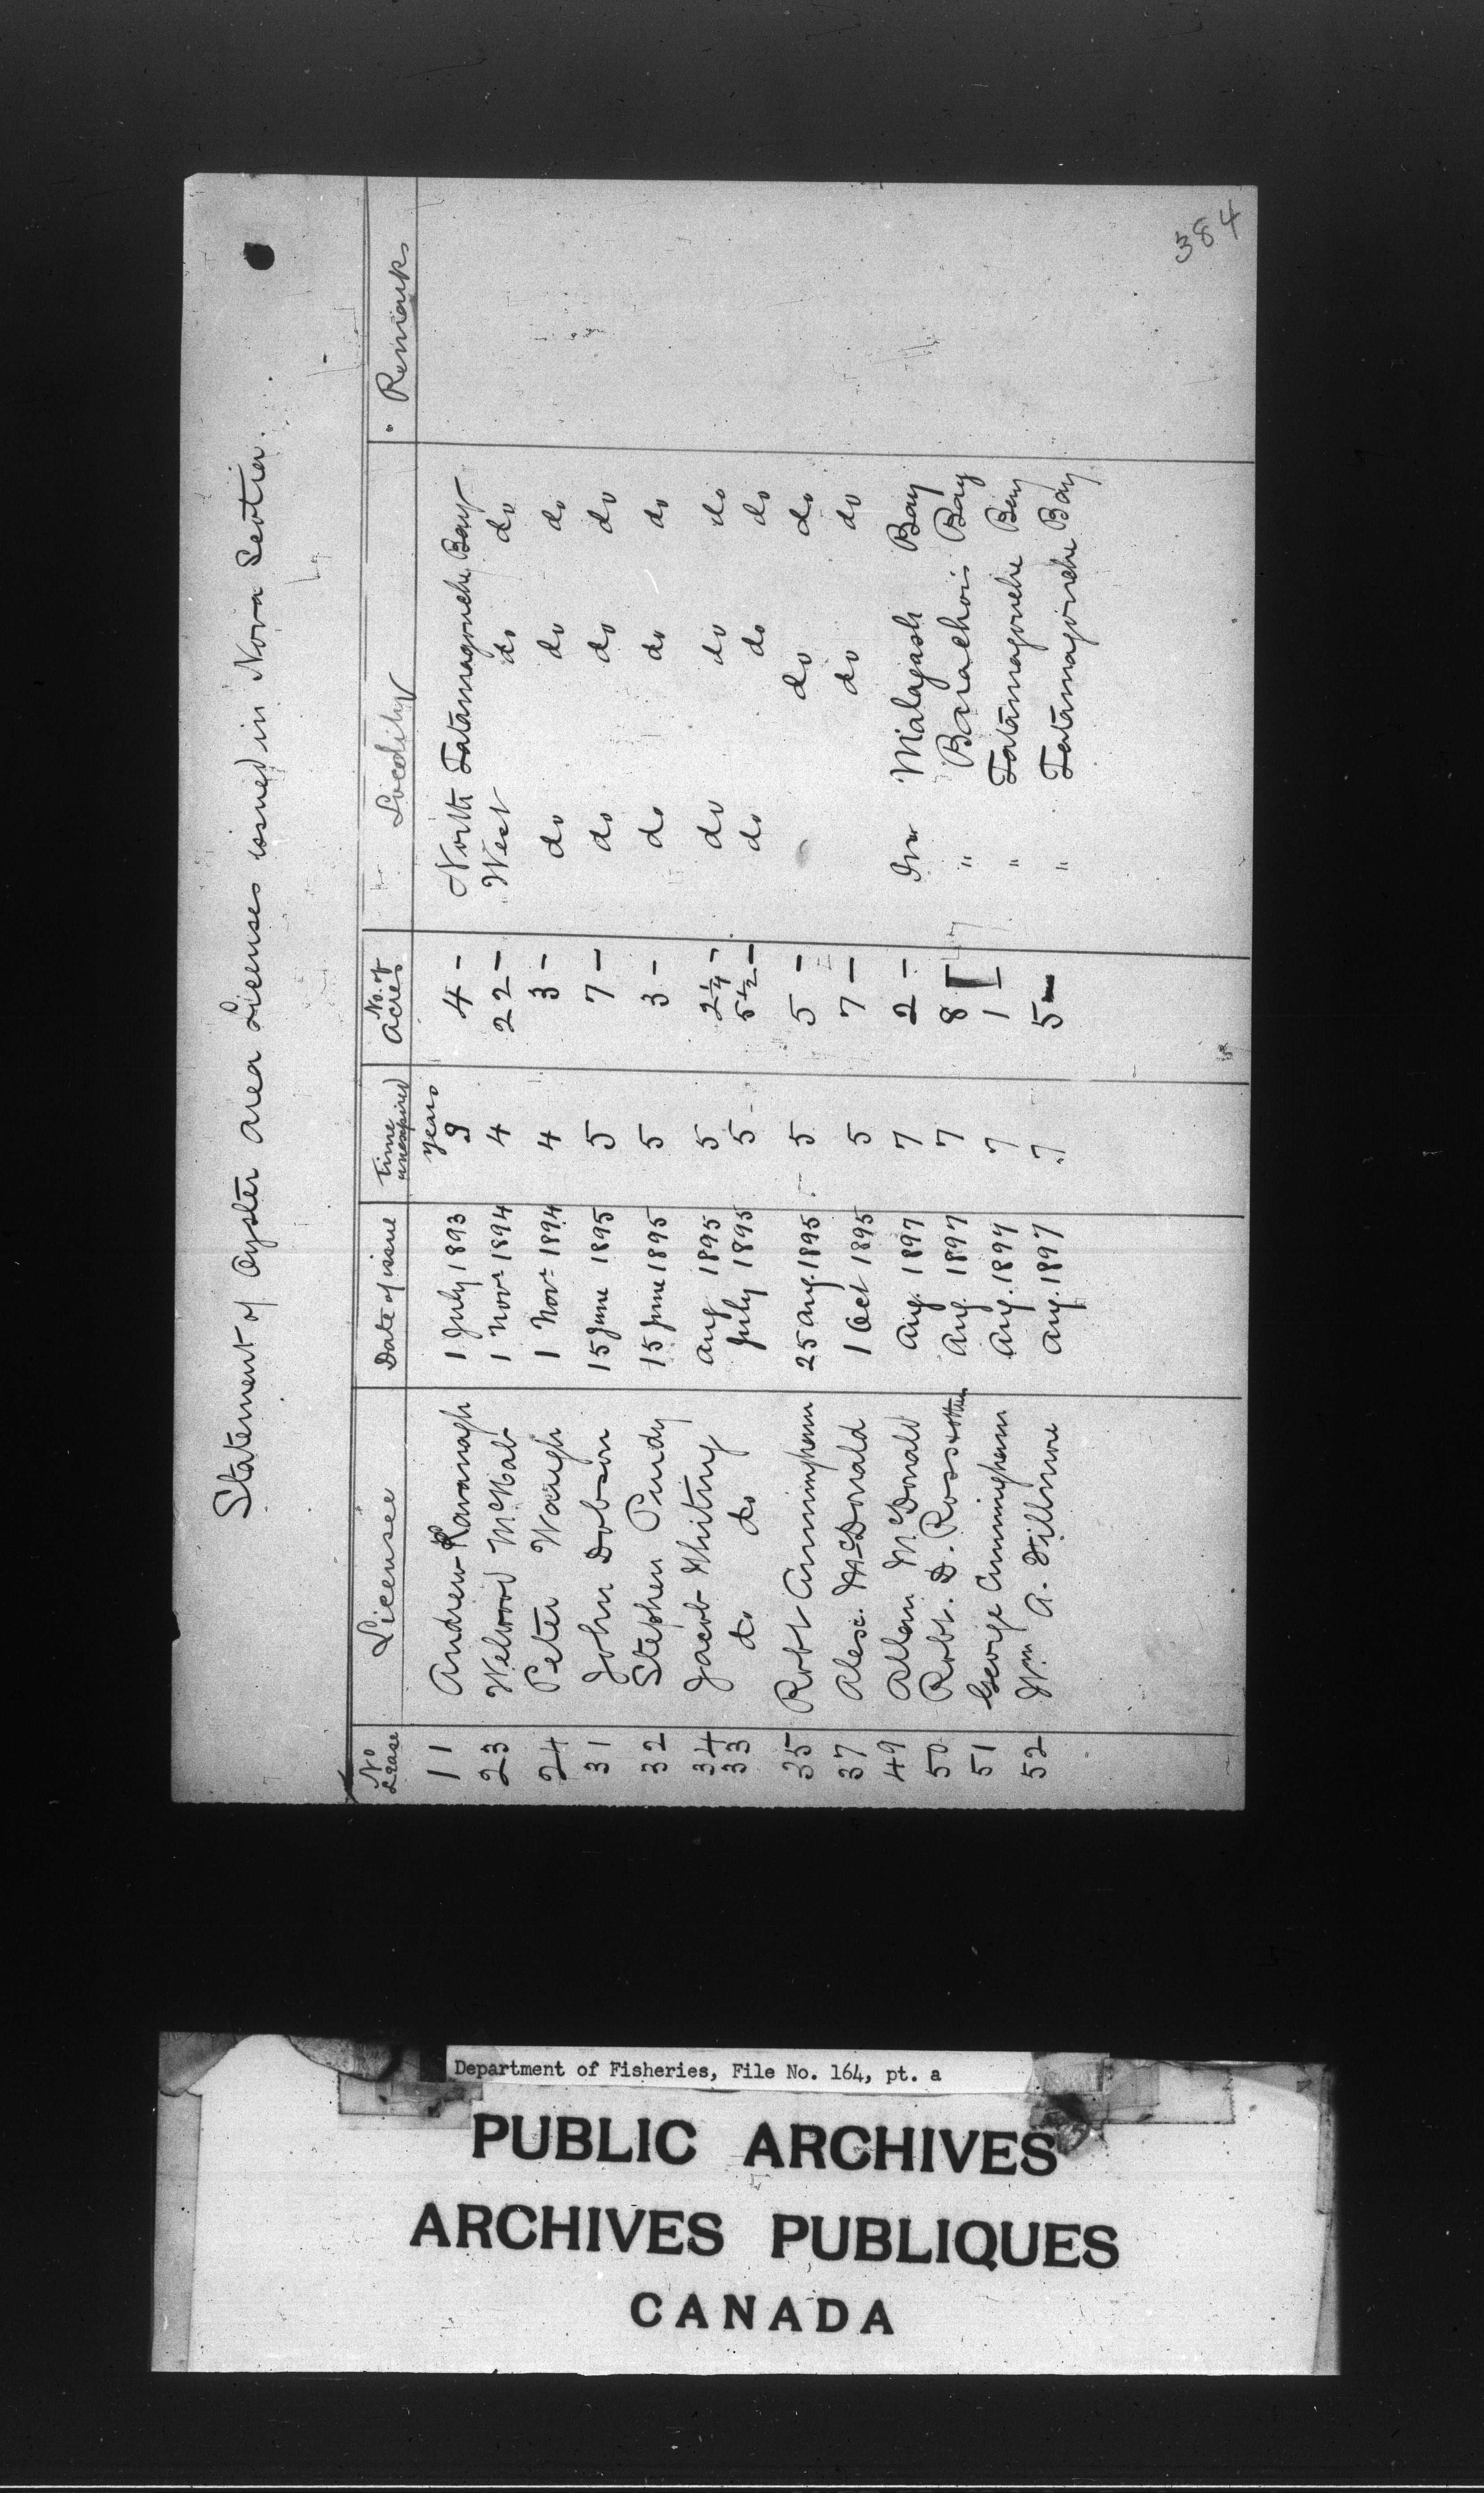 384
Statement of Oyster area Licenses issued in Nova Scotia.
No Lease Licensee Date of issue time unexpired No. of Acres Locality Remarks
years
11 Andrew Kavanagh 1 July 1893 3 4 — North Tatamagouche Bay
23 Welwood McNab 1 Novr 1894 4 22 — West do do
24 Peter Waugh 1 Novr 1894 4 3 — do do do
31 John Dobson 15 June 1895 5 7 — do do do
32 Stephen Purdy 15 June 1895 5 3 — do do do
34 Jacob Whiting Aug 1895 5 2 1/4 — do do do
33 do do July 1895 5 5 1/2 — do do do
35 Robt Cunningham 25 Aug. 1895 5 5 — do do
37 Alex. McDonald 1 Oct 1895 5 7 — do do
49 Allan McDonald Aug. 1897 7 2 — In Malagash Bay
50 Robt. D. Ross & other Aug. 1897 7 8 — " Barachois Bay
51 George Cunningham Aug. 1897 7 1 — " Tatamagouche Bay
52 Wm A. Fillmore Aug. 1897 7 5 — " Tatamagouche Bay
Department of Fisheries, File No. 164, pt. a
PUBLIC ARCHIVES
ARCHIVES PUBLIQUES
CANADA